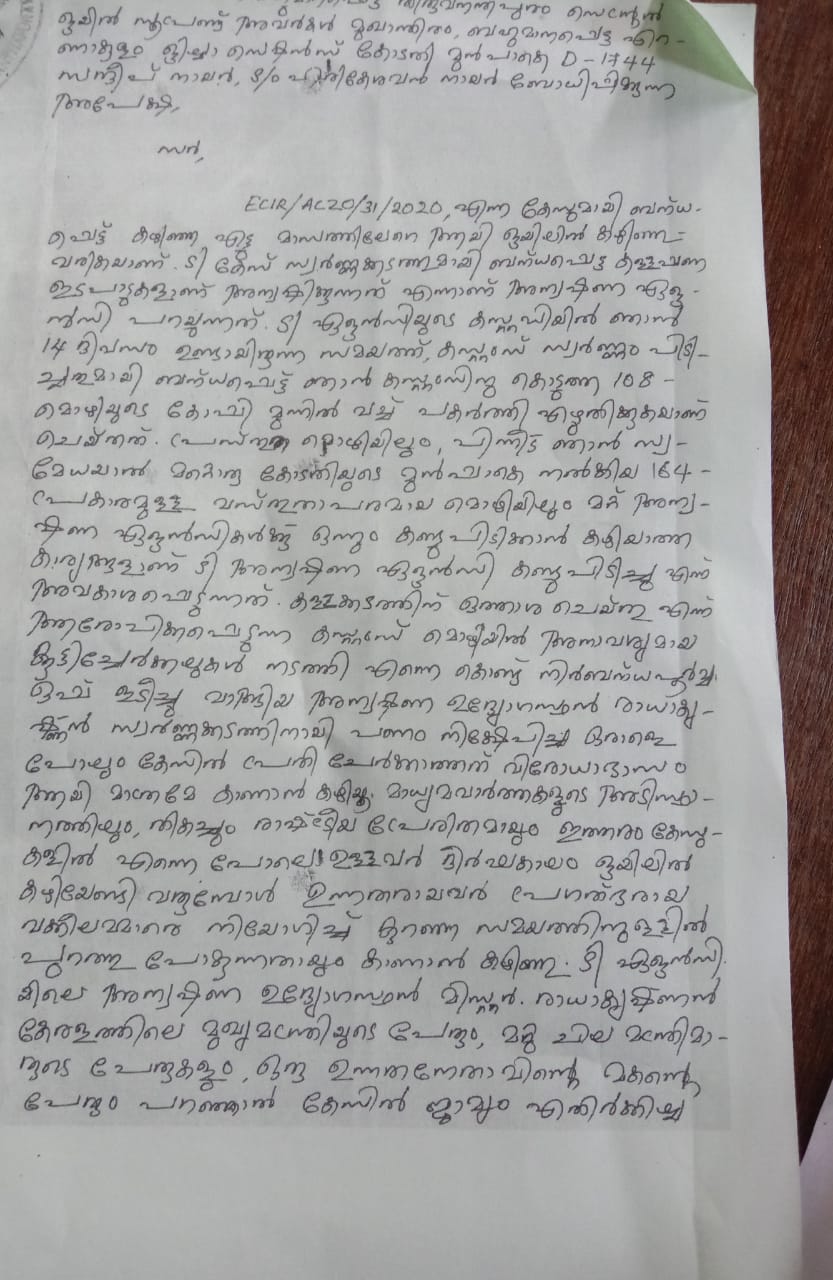 തിരുവനന്തപുരം സെൻട്രൽ
ജയിൽ സൂപ്രണ്ട് അവർകൾ മുഖാന്തിരം, ബഹുമാനപ്പെട്ട എറ-
ണാകുളം ജില്ലാ സെഷൻസ് കോടതി മുൻപാകെ D-1744
സന്ദീപ് നായർ, S/o ഹൃഷികേശവൻ നായർ ബോധിപ്പിക്കുന്ന
അപേക്ഷ,
സർ,
ECIR/ACZO/31/2020, എന്ന കേസുമായി ബന്ധ-
പ്പെട്ട് കഴിഞ്ഞ എട്ടു മാസത്തിലേറെ ആയി ജയിലിൽ കഴിഞ്ഞു-
വരികയാണ്. ടി കേസ് സ്വർണ്ണക്കടത്തുമായി ബന്ധപ്പെട്ട കള്ളപ്പണ
ഇടപാടുകളാണ് അന്വേഷിക്കുന്നത് എന്നാണ് അന്വേഷണ ഏജ-
ൻസി പറയുന്നത്. ടി ഏജൻസിയുടെ കസ്റ്റഡിയിൽ ഞാൻ
14 ദിവസം ഉണ്ടായിരുന്ന സമയത്ത്, കസ്റ്റംസ് സ്വർണ്ണം പിടി-
ച്ചതുമായി ബന്ധപ്പെട്ട് ഞാൻ കസ്റ്റംസിനു കൊടുത്ത 108-
മൊഴിയുടെ കോപ്പി മുന്നിൽ വച്ച് പകർത്തി എഴുതിക്കുകയാണ്
ചെയ്തത്. പ്രസ്തുത മൊഴിയിലും, പിന്നീട് ഞാൻ സ്വ-
മേധയാൽ മറ്റൊരു കോടതിയുടെ മുൻപാകെ നൽകിയ 164-
പ്രകാരമുള്ള വസ്തുതാപരമായ മൊഴിയിലും മറ്റ് അന്വേ-
ഷണ ഏജൻസികൾക്ക് ഒന്നും കണ്ടുപിടിക്കാൻ കഴിയാത്ത
കാര്യങ്ങളാണ് ടി അന്വേഷണ ഏജൻസി കണ്ടുപിടിച്ചു എന്ന്
അവകാശപ്പെടുന്നത്. കള്ളക്കടത്തിന് ഒത്താശ ചെയ്തു എന്ന്
ആരോപിക്കപ്പെടുന്ന കസ്റ്റംസ് മൊഴിയിൽ അനാവശ്യമായ
കൂട്ടിച്ചേർക്കലുകൾ നടത്തി എന്നെ കൊണ്ട് നിർബന്ധപൂർവ്വം
ഒപ്പ് ഇടീച്ചു വാങ്ങിയ അന്വേഷണ ഉദ്യോഗസ്ഥൻ രാധാകൃ-
ഷ്ണൻ സ്വർണ്ണക്കടത്തിനായി പണം നിക്ഷേപിച്ച ഒരാളെ
പോലും കേസിൽ പ്രതി ചേർക്കാത്തത് വിരോധാഭാസം
ആയി മാത്രമേ കാണാൻ കഴിയൂ. മാധ്യമവാർത്തകളുടെ അടിസ്ഥാ-
നത്തിലും, തികച്ചും രാഷ്ട്രീയ പ്രേരിതമായും ഇത്തരം കേസു-
കളിൽ എന്നെ പോലെ ഉള്ളവർ ദീർഘകാലം ജയിലിൽ
കഴിയേണ്ടി വരുമ്പോൾ ഉന്നതരായവർ പ്രഗത്ഭരായ
വക്കീലന്മാരെ നിയോഗിച്ച് കുറഞ്ഞ സമയത്തിനുള്ളിൽ
പുറത്തു പോകുന്നതായും കാണാൻ കഴിഞ്ഞു. ടി ഏജൻസി-
യിലെ അന്വേഷണ ഉദ്യോഗസ്ഥൻ മിസ്റ്റർ. രാധാകൃഷ്ണൻ
കേരളത്തിലെ മുഖ്യമന്ത്രിയുടെ പേരും, മറ്റു ചില മന്ത്രിമാ-
രുടെ പേരുകളും, ഒരു ഉന്നതനേതാവിന്റെ മകന്റെ
പേരും പറഞ്ഞാൽ കേസിൽ ജാമ്യം എതിർക്കില്ല